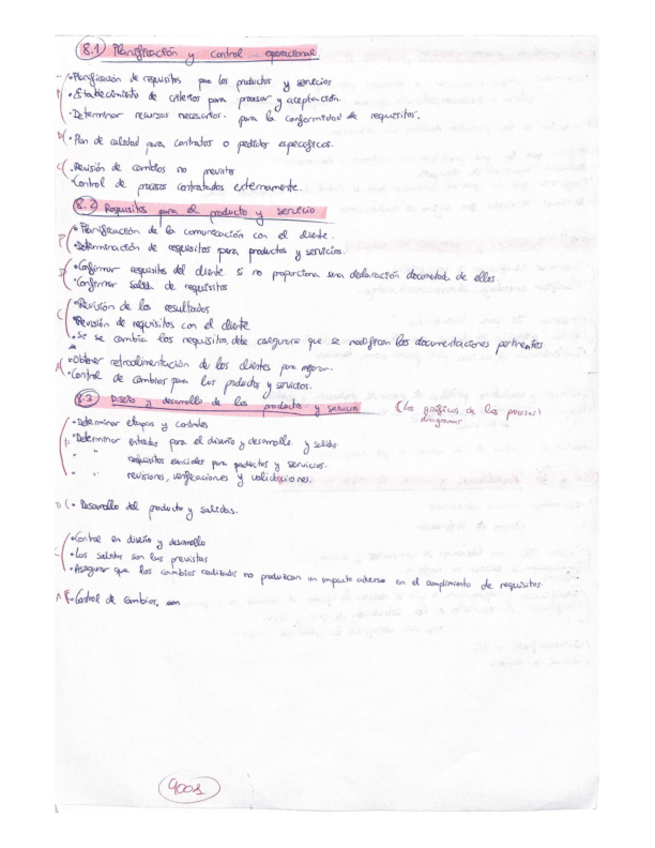 8.1 Planificación y control operacional.
P • Planificación de requisitos para los productos y servicios
• Establecimiento de criterios para procesar y aceptación.
• Determinar recursos necesarios. para la conformidad de requisitos.
D • Plan de calidad para contratos o pedidos específicos.
C • Revisión de cambios no previstos
• Control de procesos contratados externamente.
8.2 Requisitos para el producto y servicio
P • Planificación de la comunicación con el cliente.
• Determinación de requisitos para productos y servicios.
D • Confirmar requisitos del cliente si no proporciona una declaración documentada de ellos.
• Confirmar salida de requisitos
C • Revisión de los resultados
• Revisión de requisitos con el cliente
• Si se cambia los requisitos, debe asegurarse que se modifican las documentaciones pertinentes.
A • Obtener retroalimentación de los clientes para mejorar.
• Control de cambios para los productos y servicios.
8.3 Diseño y desarrollo de los productos y servicios (los gráficos de los procesos)
diagramas
• Determinar etapas y controles
P • Determinar entradas para el diseño y desarrollo y salida
" " requisitos esenciales para productos y servicios.
" " revisiones, verificaciones y validaciones.
D • Desarrollo del producto y salidas.
• Control en diseño y desarrollo
C • Las salidas son las previstas
• Asegurar que los cambios realizados no produzcan un impacto adverso en el cumplimiento de requisitos.
A • Control de cambios.
9001